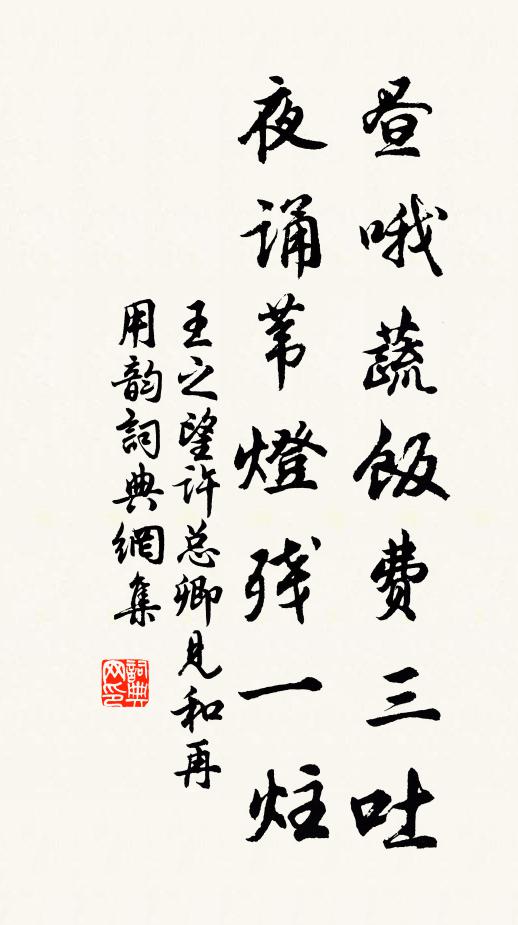 昼哦蔬飯费三吐
夜诵苇燈残一炷
王之望许总卿见和再
用韵詞典網集
詞典
网印